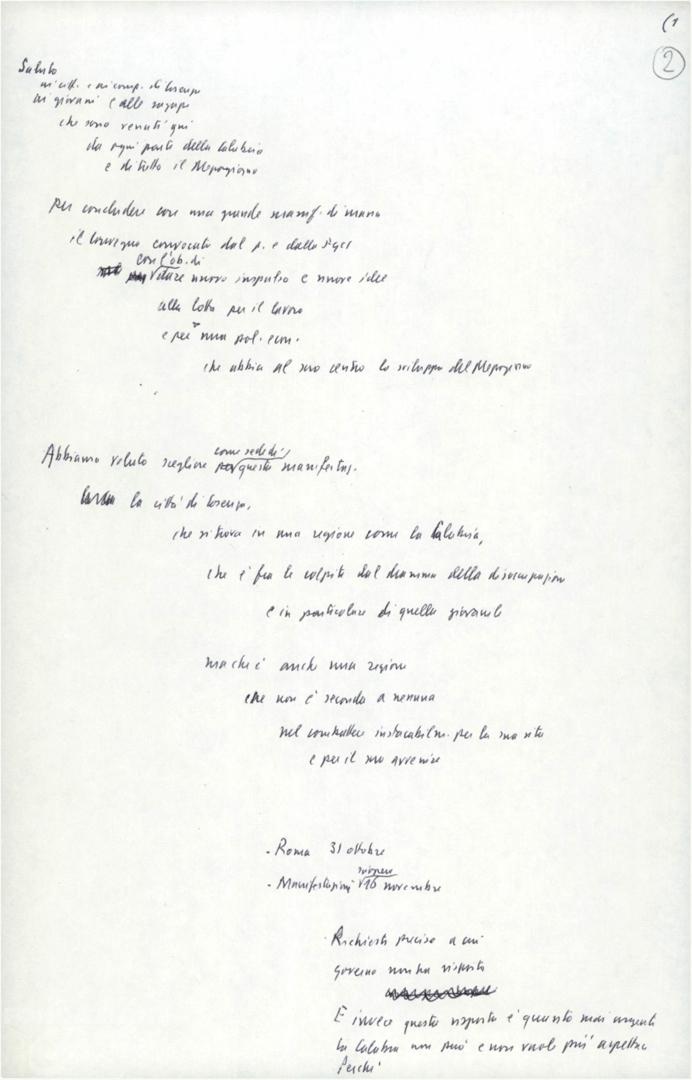 (1
2
Saluto
ai citt. e ai comp. di Cosenza
ai giovani e alle ragazze
che sono venuti qui
da ogni parte della Calabria
e di tutto il Mezzogiorno
Per concludere con una grande manif. di massa
il convegno convocato dal p. e dalla FGCI
con l'ob. di
dare nuovo impulso e nuove idee
alla lotta per il lavoro
e per una pol. econ.
che abbia al suo centro lo sviluppo del Mezzogiorno
Abbiamo voluto scegliere come sede di questa manifestaz.
la città di Cosenza,
che si trova in una regione come la Calabria,
che è fra le colpite dal dramma della disoccupazione
e in particolare di quella giovanile
ma che è anche una regione
che non è seconda a nessuna
nel combattere instancabilm. per la sua vita
e per il suo avvenire
- Roma 31 ottobre
- Manifestazioni sciopero 16 novembre
Richieste precise a cui
governo non ha risposto
E invece questa risposta è quanto mai urgente
La Calabria non può e non vuole più aspettare
Perché